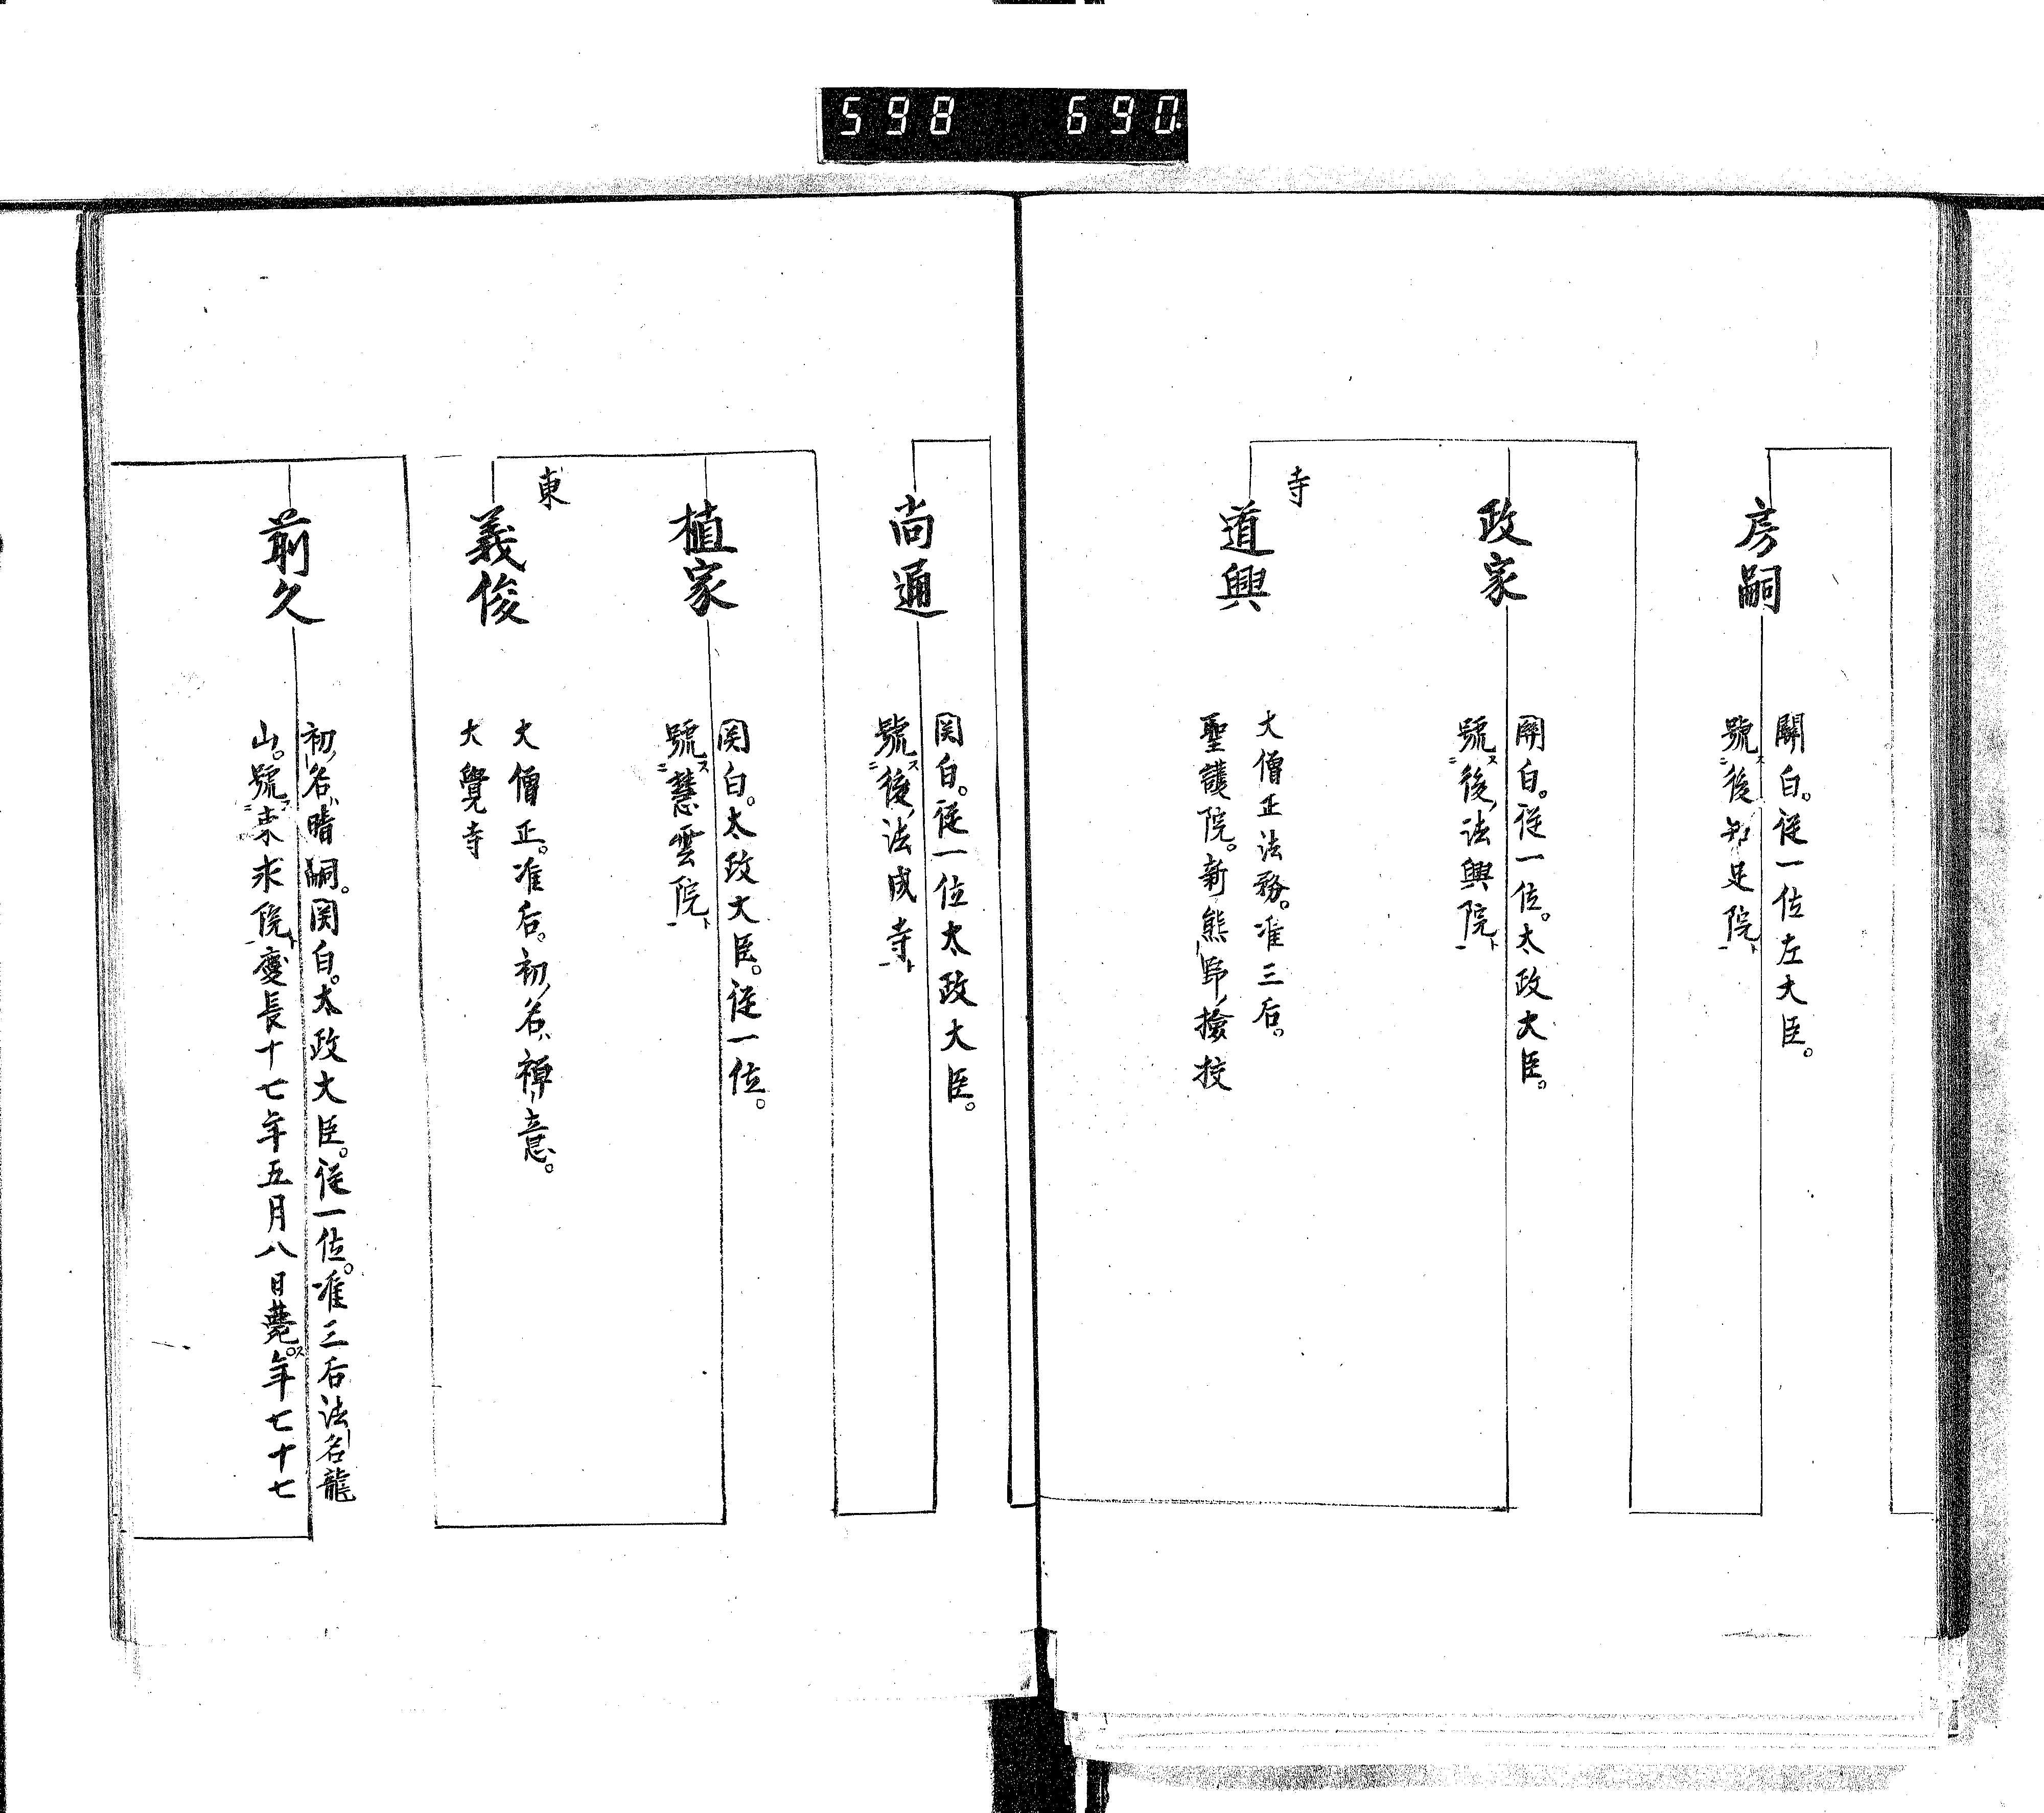 598 690.
房嗣
關白。従一位左大臣。
號ス後知足院ト
政家
関白。従一位。太政大臣。
號ス後ノ法興院ト
寺
道興
大僧正法務。准三后。
聖護院。新熊野撿挍
尚通
関白。従一位太政大臣。
號ス後ノ法成寺ト
植家
関白。太政大臣。従一位。
號ス慧雲院ト
東
義俊
大僧正。准后。初ノ名ハ禅意。
大覺寺
前久
初ノ名ハ晴嗣。関白。太政大臣。従一位。准三后法名龍
山。號ス東求院ト慶長十七年五月八日薨ス。年七十七